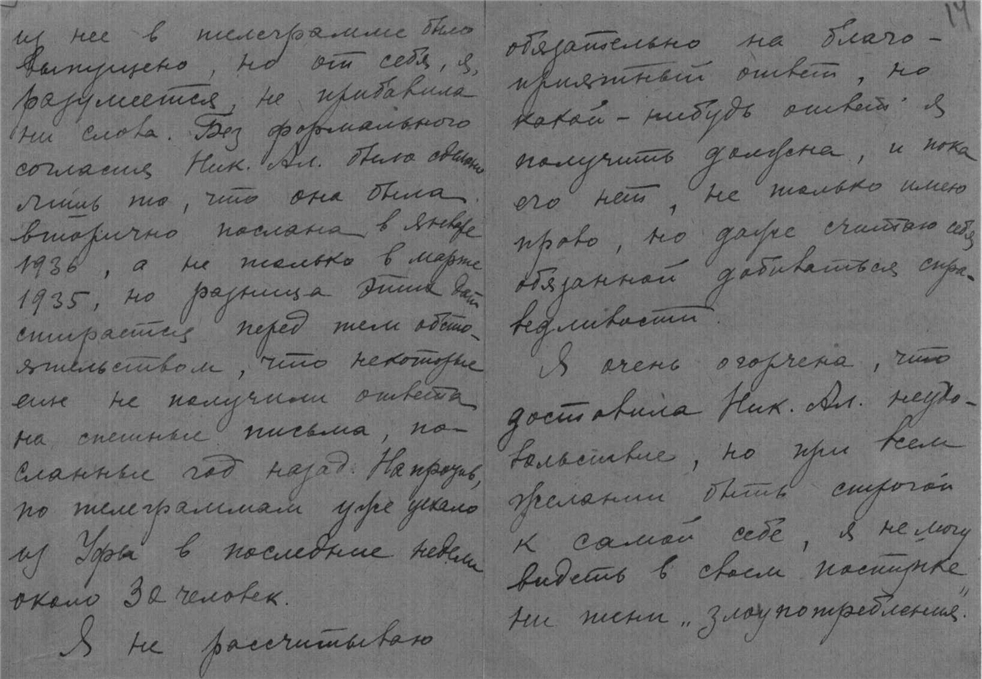 из нее в телеграмме было
выпущено, но от себя, я,
разумеется, не прибавила
ни слова. Без формального
согласия Ник. Ал. было сделано
лишь то, что она была
вторично послана в январе
1936, а не только в марте
1935, но разница этих дат
стирается перед тем обсто-
ятельством, что некоторые
еще не получили ответа
на спешные письма, по-
сланные год назад. Напротив,
по телеграммам уже уехало
из Уфы в последние недели
около 30 человек.
Я не рассчитываю
14
обязательно на благо-
приятный ответ, но
какой-нибудь ответ я
получить должна, и пока
его нет, не только имею
право, но даже считаю себя
обязанной добиваться спра-
ведливости.
Я очень огорчена, что
доставила Ник. Ал. неудо-
вольствие, но при всем
желании быть строгой
к самой себе, я не могу
видеть в своем поступке
ни тени „злоупотребления".